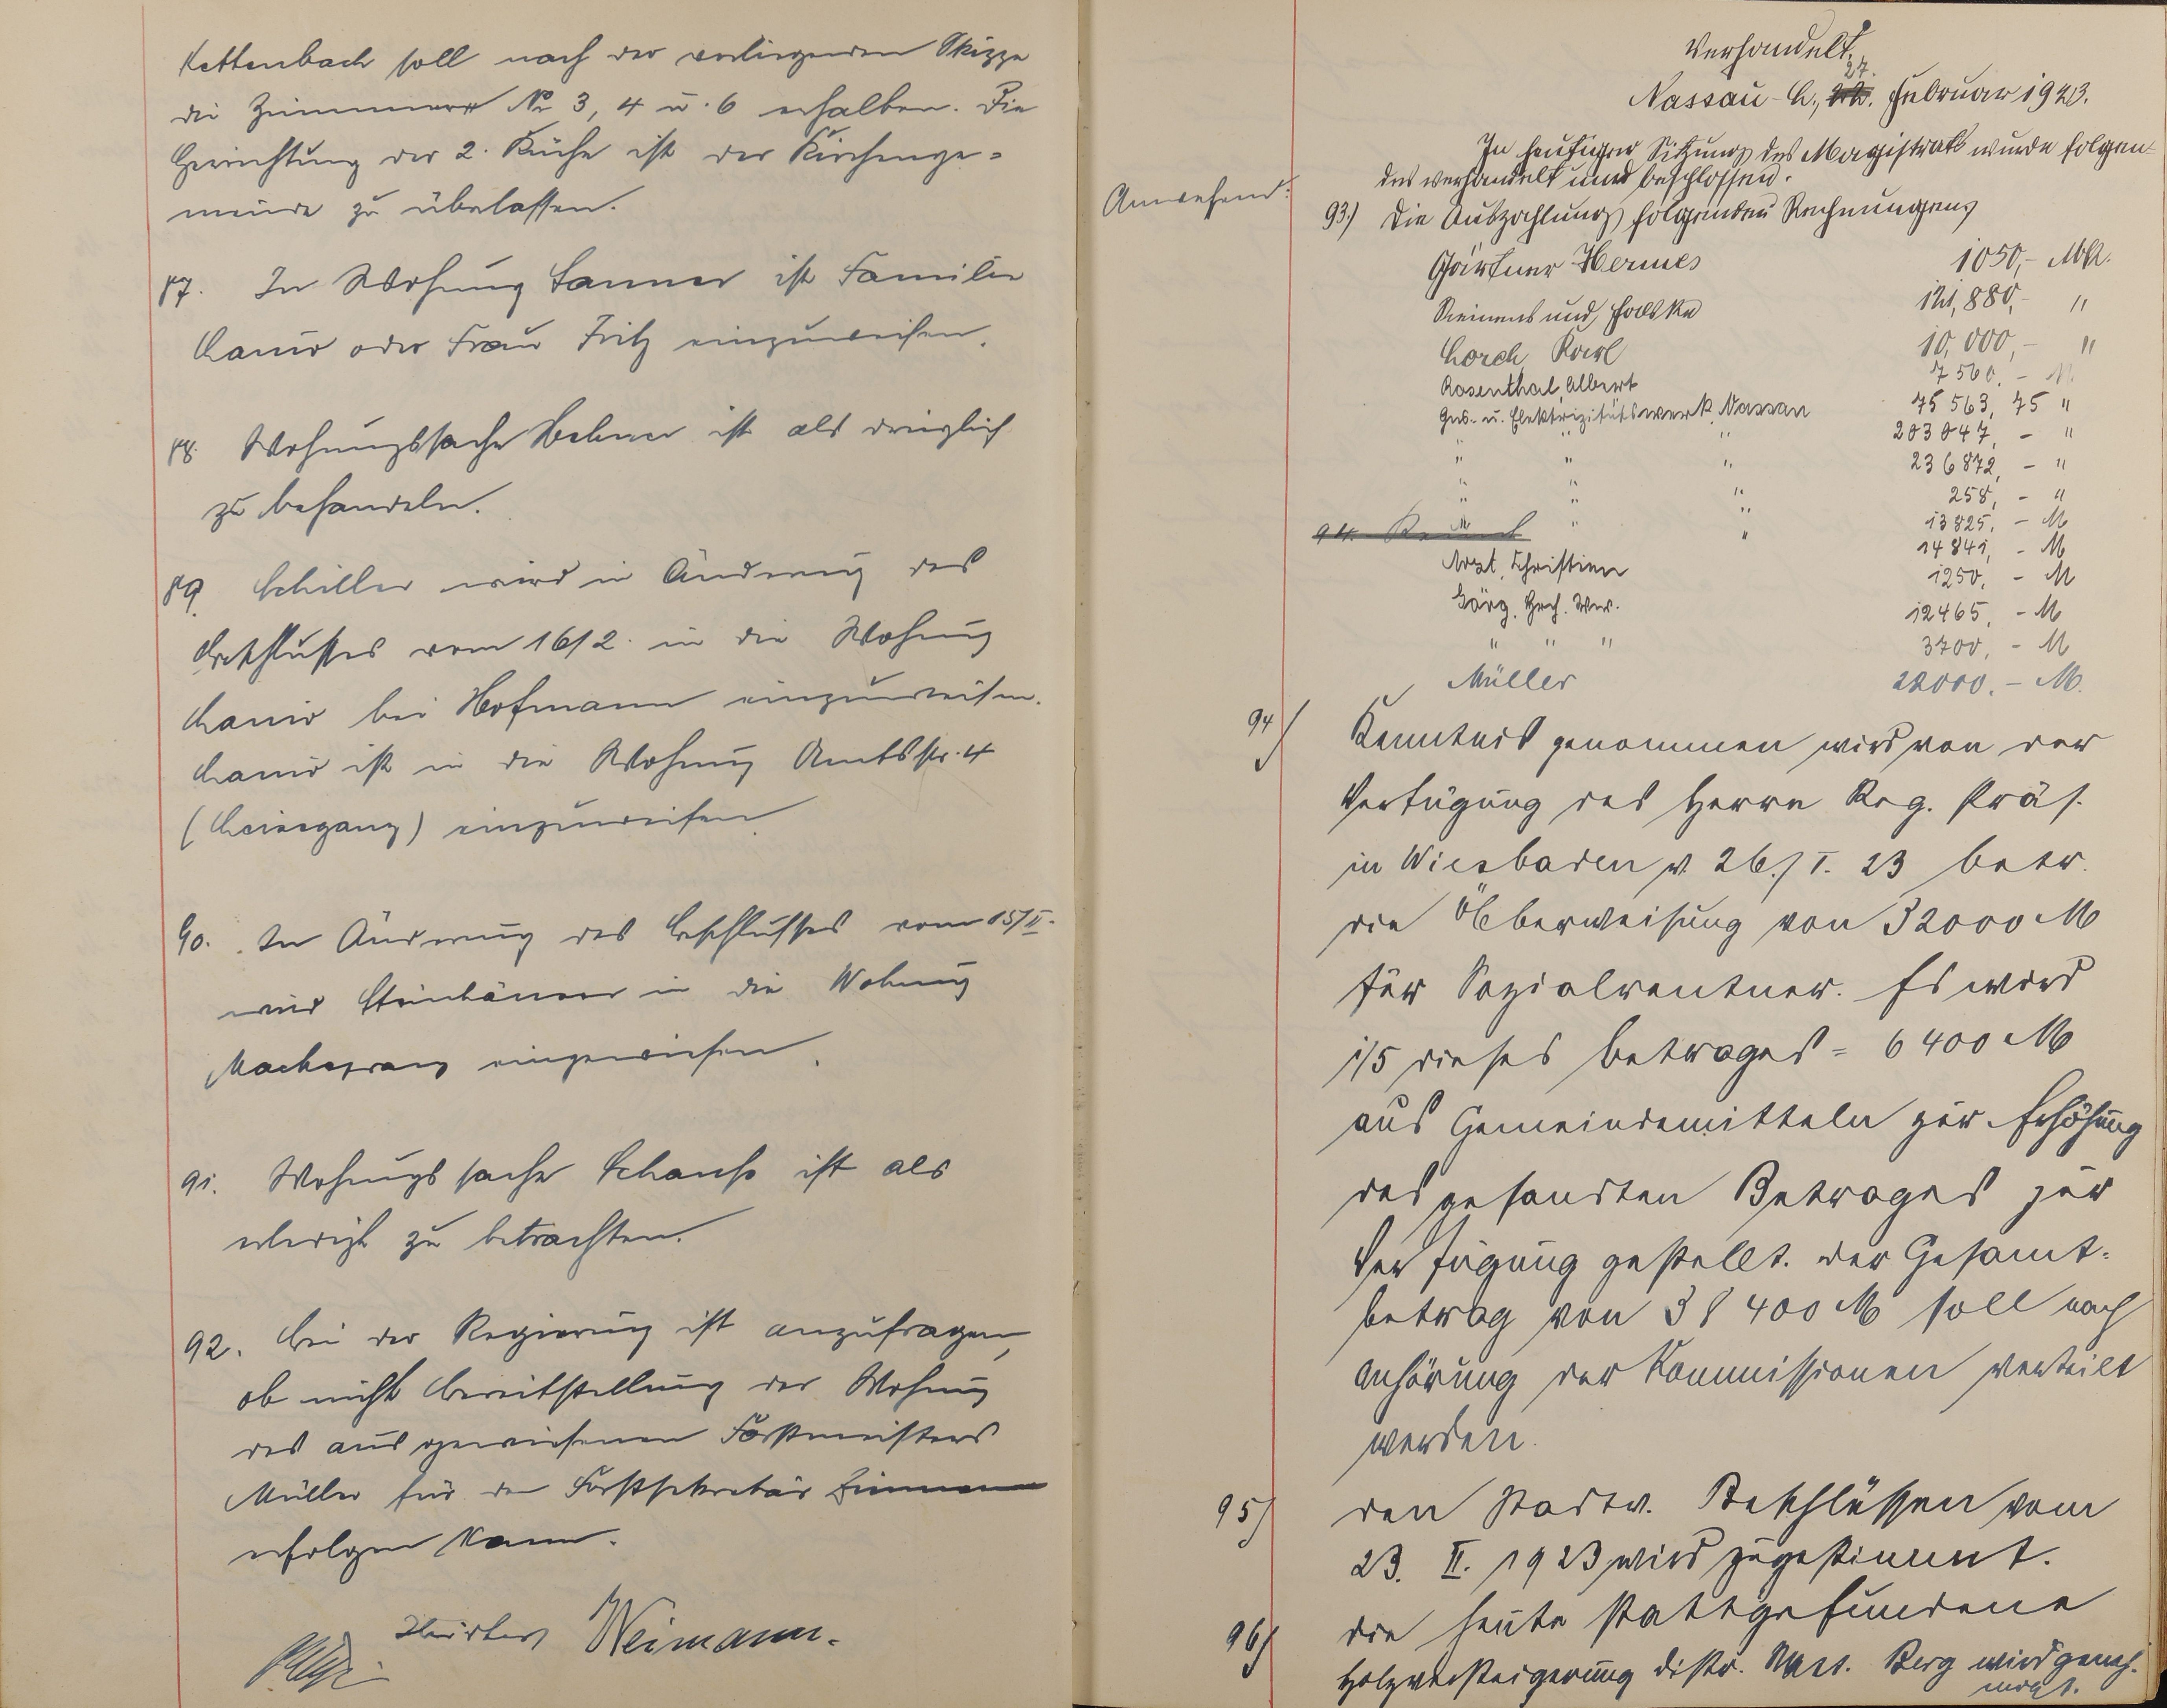 Kettenbach soll nach der vorliegenden Skizze
die Zimmer No 3, 4 u. 6 erhalten. Die
Herrichtung der 2. Küche ist der Kirchenge-
meinde zu überlassen.
87. In Wohnung Sanner ist Familie
oder Frau Fritz einzuweisen.
88. Wohnungssache ist als dringlich
zu behandeln.
89. Schiller wird in Änderung des
Beschlusses vom 16/2. in die Wohnung
bei Hofmann einzuweisen.
ist in die Wohnung Amtsstr. 4
einzuweisen
90. In Änderung des Beschlusses vom 15/II.
wird in die Wohnung
eingewiesen.
91. Wohnungssache Schanß ist als
erledigt zu betrachten.
92. Bei der Regierung ist anzufragen,
ob nicht Bereitstellung der Wohnung
des ausgewiesenen Forstmeisters
Müller für den Forstsekretär
erfolgen kann.
Weimann.
Verhandelt.
27.
Nassau-L., 22. Februar 1923.
In heutiger Sitzung des Magistrats wurde folgen-
des verhandelt und beschlossen.
Anwesend:
93.) Die Auszahlung folgenden Rechnungen,
Gärtner Hermes 1050,- Mk.
und 121,880,- "
Lorch, Karl 10,000,- "
Rosenthal, Albert 7560,- M
Gas- u. Elektrizitätswerk, Nassau 45563,75 "
" " " 203047,- "
" " " 236872,- "
" " " 258,- "
94. " " 13825,- M
" " 14841,- M
Christian 1250,- M
Görg, Hch. Ww. 12465,- M
" " " 3700,- M
Müller 22000.- M.
94) Kenntnis genommen wird von der
Verfügung des Herrn Reg. Präs.
in Wiesbaden v. 26./I. 23 betr.
die Überweisung von 32000 M
für Sozialrentner. Es wird
1/5 dieses Betrages = 6400 M
aus Gemeindemitteln zur Erhöhung
des gesandten Betrages zur
Verfügung gestellt. Der Gesamt-
betrag von 38400 M soll nach
Anhörung der Kommissionen verteilt
werden.
95) Den Stadtv. Beschlüssen vom
23. II. 1923 wird zugestimmt.
96) Die heute stattgefundene
Holzversteigerung Distr. Berg wird geneh-
migt.